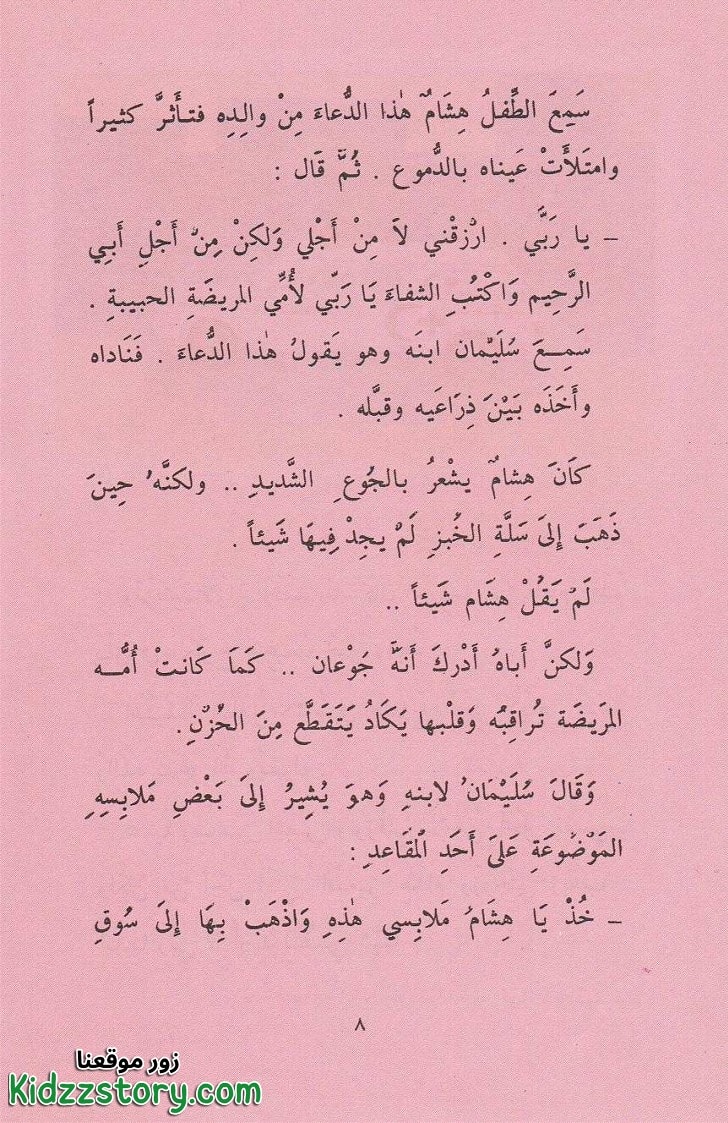 سَمِعَ الطِّفلُ هِشَامٌ هٰذا الدُّعاءَ مِنْ والِدِه فتـأَثرَّ كثيراً
وامتَلأَتْ عَيناه بالدُّموع . ثُمَّ قَال :
– يا رَبَّي . ارْزقْني لاَ مِنْ أَجْلي وَلكِنْ مِنْ أَجْلِ أَبـِي
الرَّحِيم وَاكْتُبِ الشفاءَ يَا رَبّي لأُمِّي المريضَةِ الحبيبةِ .
سَمِــعَ سُلَيْمان ابنَه وهو يَقولُ هٰذا الدُّعاءَ . فَنَاداه
وأَخَذَه بَيْنَ ذِرَاعَيه وقبَّله .
كَانَ هِشامٌ يشْعرُ بـالجُوعِ الشَّديدِ .. ولكنَّهُ حِينَ
ذَهَبَ إِلىَ سَلَّةِ الخُبزِ لَمْ يجِدْ فِيهَا شَيئاً .
لَمْ يَقُلْ هِشَام شَيئاً ..
وَلكنَّ أَباهُ أَدْركَ أَنهَّ جَوْعان .. كَمَا كَانتْ أُمُّــه
المرَيضَة تُراقِبُه وَقلْبها يَكَادُ يَتَقَطَّع مِنَ الحُزْنِ .
وَقَالَ سُلَيْمَانُ لابنهِ وَهوَ يُشِيرُ إِلىَ بَعْضِ مَلابِسِهِ
المَوْضُوعَةِ عَلىَ أَحَدِ المْقَاعِدِ :
– خُذْ يَا هِشَامُ مَلابِسي هٰذِهِ وَاذْهَبْ بِهَا إِلىَ سُوقِ
٨
زور موقعنا
Kidzzstory.com